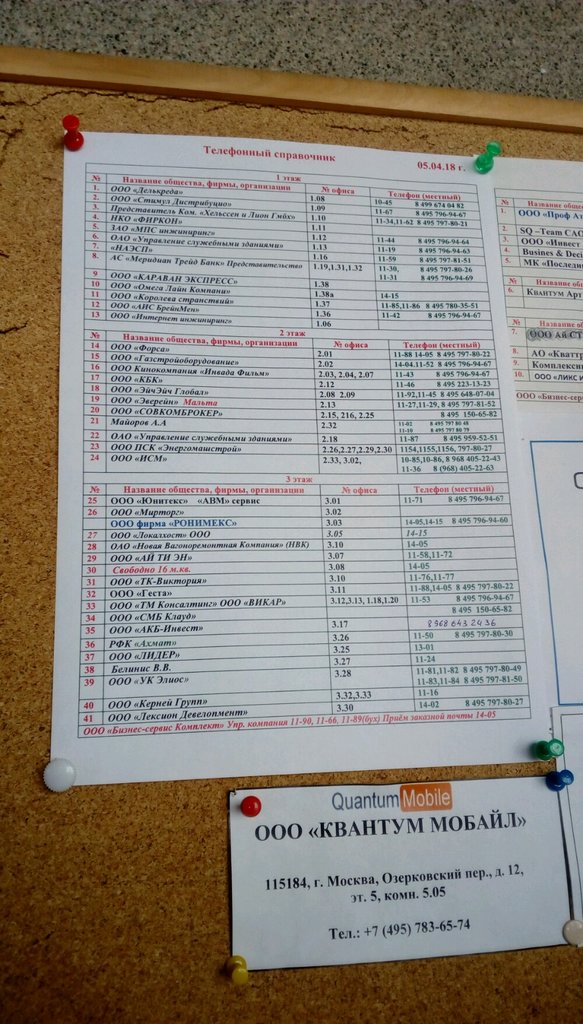 Телефонный справочник
05.04.18 г.
1 этаж
№ Название общества, фирмы, организации № офиса Телефон (местный)
1. ООО «Делькреда» 1.08
2. ООО «Стимул Дистрибуцио» 1.09 10-45 8 499 674 04 82
3. Представитель Ком. «Хельссен и Лион Гмбх» 1.10 11-67 8 495 796-94-67
4. НКО «ФИРКОН» 1.11 11-34,11-62 8 495 797-80-21
5. ЗАО «МПС инжиниринг» 1.12
6. ОАО «Управление служебными зданиями» 1.13 11-44 8 495 796-94-64
7. «НАЭСП» 1.16 11-19 8 495 796-94-63
8. АС «Меридиан Трейд Банк» Представительство 1.19,1.31,1.32 11-59 8 495 797-81-51
11-30, 8 495 797-80-26
11-31 8 495 796-94-69
9 ООО «КАРАВАН ЭКСПРЕСС» 1.38
10 ООО «Омега Лайн Компани» 1.38а
11 ООО «Королева странствий» 1.37 14-15
12 ООО «АЙС БрейнМен» 1.36 11-85,11-86 8 495 780-35-51
13 ООО «Интернет инжиниринг» 1.06 11-42 8 495 796-94-67
2 этаж
№ Название общества, фирмы, организации № офиса Телефон (местный)
14 ООО «Форса» 2.01 11-88 14-05 8 495 797-80-22
15 ООО «Газстройоборудование» 2.02 14-04,11-52 8 495 796-94-67
16 ООО Кинокомпания «Инвада Фильм» 2.03, 2.04, 2.07 11-43 8 495 796-94-67
17 ООО «КБК» 2.12 11-46 8 495 223-13-23
18 ООО «ЭйчЭйч Глобал» 2.08 2.09 11-92,11-45 8 495 648-07-04
19 ООО «Эверейн» Мальта 2.13 11-27,11-29, 8 495 797-81-52
20 ООО «СОВКОМБРОКЕР» 2.15, 216, 2.25 8 495 150-65-82
21 Майоров А.А 2.32 11-02 8 495 797 80 48
8 495 797 80 79
22 ОАО «Управление служебными зданиями» 2.18 11-87 8 495 959-52-51
23 ООО ПСК «Энергомашстрой» 2.26,2.27,2.29,2.30 1154,1155,1156, 797-80-27
24 ООО «ИСМ» 2.33, 3.02, 10-85,10-86, 8 968 405-22-43
11-36 8 (968) 405-22-63
3 этаж
№ Название общества, фирмы, организации № офиса Телефон (местный)
25 ООО «Юнитекс» «АВМ» сервис 3.01 11-71 8 495 796-94-67
26 ООО «Мирторг» 3.02
ООО фирма «РОНИМЕКС» 3.03 14-05,14-15 8 495 796-94-60
27 ООО «Локалхост» ООО 3.05 14-15
28 ОАО «Новая Вагоноремонтная Компания» (НВК) 3.10 14-05
29 ООО «АЙ ТИ ЭН» 3.07 11-58,11-72
30 Свободно 16 м.кв. 3.08 14-05
31 ООО «ТК-Виктория» 3.10 11-76,11-77
32 ООО «Геста» 3.11 11-88,14-05 8 495 797-80-22
33 ООО «ТМ Консалтинг» ООО «ВИКАР» 3.12,3.13, 1.18,1.20 11-53 8 495 796-94-67
34 ООО «СМБ Клауд» 8 495 150-65-82
35 ООО «АКБ-Инвест» 3.17 8 968 643 24 36
36 РФК «Ахмат» 3.26 11-50 8 495 797-80-30
37 ООО «ЛИДЕР» 3.25 13-01
38 Белинис В.В. 3.27 11-24
39 ООО «УК Элиос» 3.28 11-81,11-82 8 495 797-80-49
11-83,11-84 8 495 797-81-50
40 ООО «Керней Групп» 3.32,3.33 11-16
41 ООО «Лексион Девелопмент» 3.30 14-02 8 495 797-80-27
ООО «Бизнес-сервис Комплект» Упр. компания 11-90, 11-66, 11-89(бух) Приём заказной почты 14-05
№ Название
1. ООО «Проф
2. SQ –Team САО
3. ООО «Инвест
4. Busines & Deci
5. МК «Последн
№ Название
6. Квантум Арт
№ Название
7. ООО Ай СТ
8. АО «Кватт
9. Комплексн
10. ООО «ЛИКС
ООО «Бизнес-сер
QuantumMobile
ООО «КВАНТУМ МОБАЙЛ»
115184, г. Москва, Озерковский пер., д. 12,
эт. 5, комн. 5.05
Тел.: +7 (495) 783-65-74